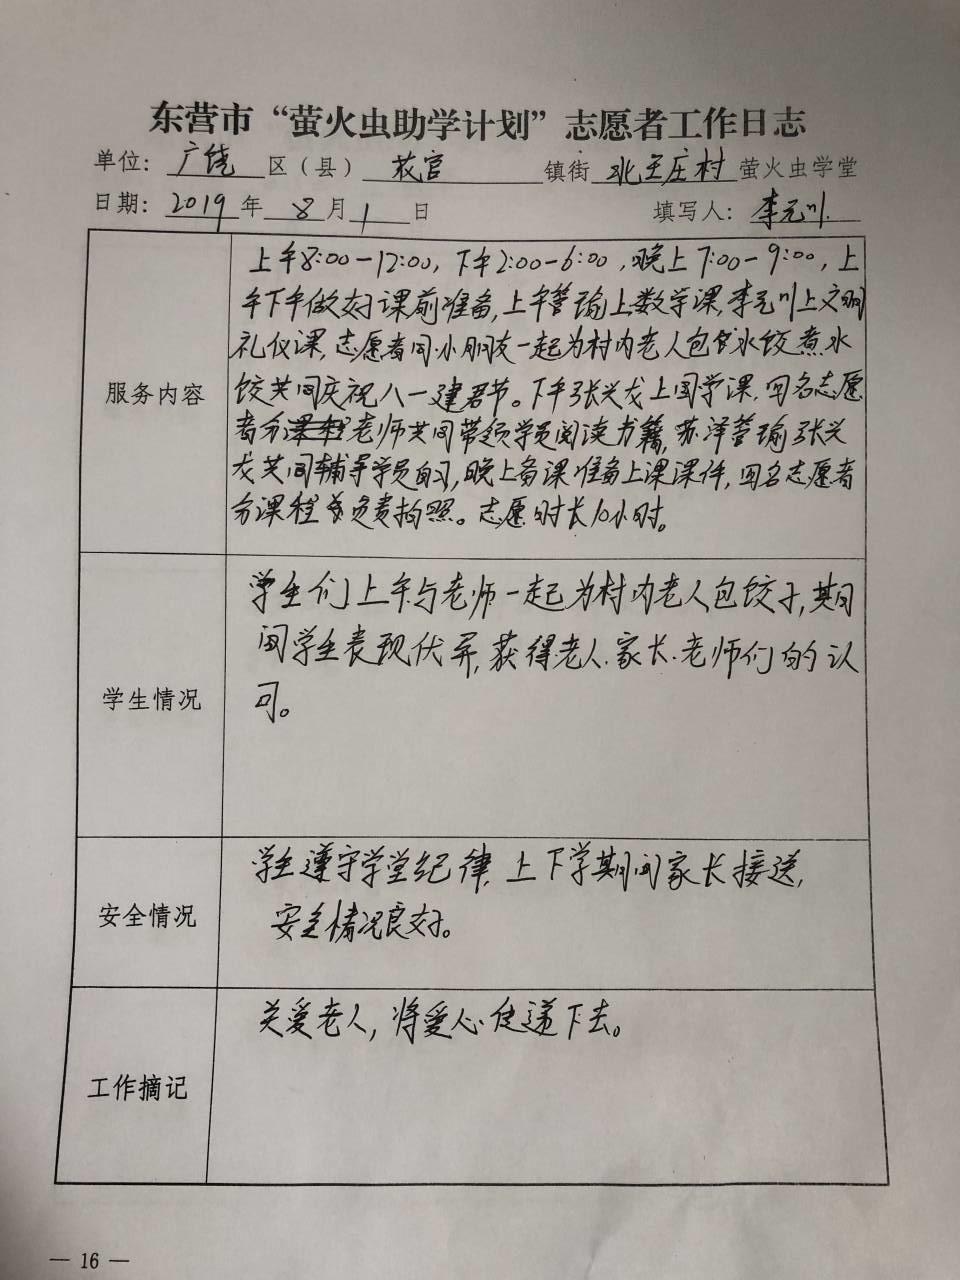 东营市“萤火虫助学计划”志愿者工作日志
单位：广饶区（县）花官镇街北王庄村萤火虫学堂
日期：2019年8月1日 填写人：李元川
服务内容
上午8:00-12:00，下午2:00-6:00，晚上7:00-9:00，上
午下午做好课前准备，上午管瑜上数学课，李元川上文明
礼仪课，志愿者同小朋友一起为村内老人包水饺煮水
饺共同庆祝八一建君节。下午张兴戈上国学课，四名志愿
者分老师共同带领学员阅读书籍，苏泽管瑜张兴
戈共同辅导学员自习，晚上备课准备上课课件，四名志愿者
分课程负责拍照。志愿时长10小时。
学生情况
学生们上午与老师一起为村内老人包饺子，期
间学生表现优异，获得老人、家长、老师们的认
可。
安全情况
学生遵守学堂纪律，上下学期间家长接送，
安全情况良好。
工作摘记
关爱老人，将爱心传递下去。
— 16 —